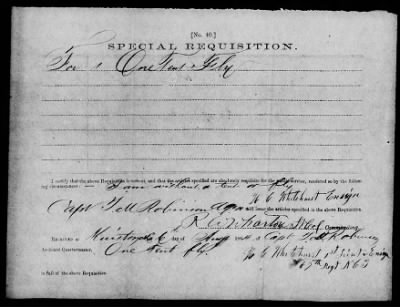 [No. 40.]
SPECIAL REQUISITION.
For One Tent & Fly
I certify that the above Requisition is correct, and that the articles specified are absolutely requisite for the public service, rendered so by the following circumstances: — I am without a tent or fly
N C Whitehurst Ensign
Capt J M Robinson AQM will issue the articles specified in the above Requisition.
Commanding.
Received at Kinston the 6 day of 1864 of Capt Robinson
Assistant Quartermaster, One tent fly
N C Whitehurst 1st Lieut & Ensign
67th Regt N C T
in full of the above Requisition.